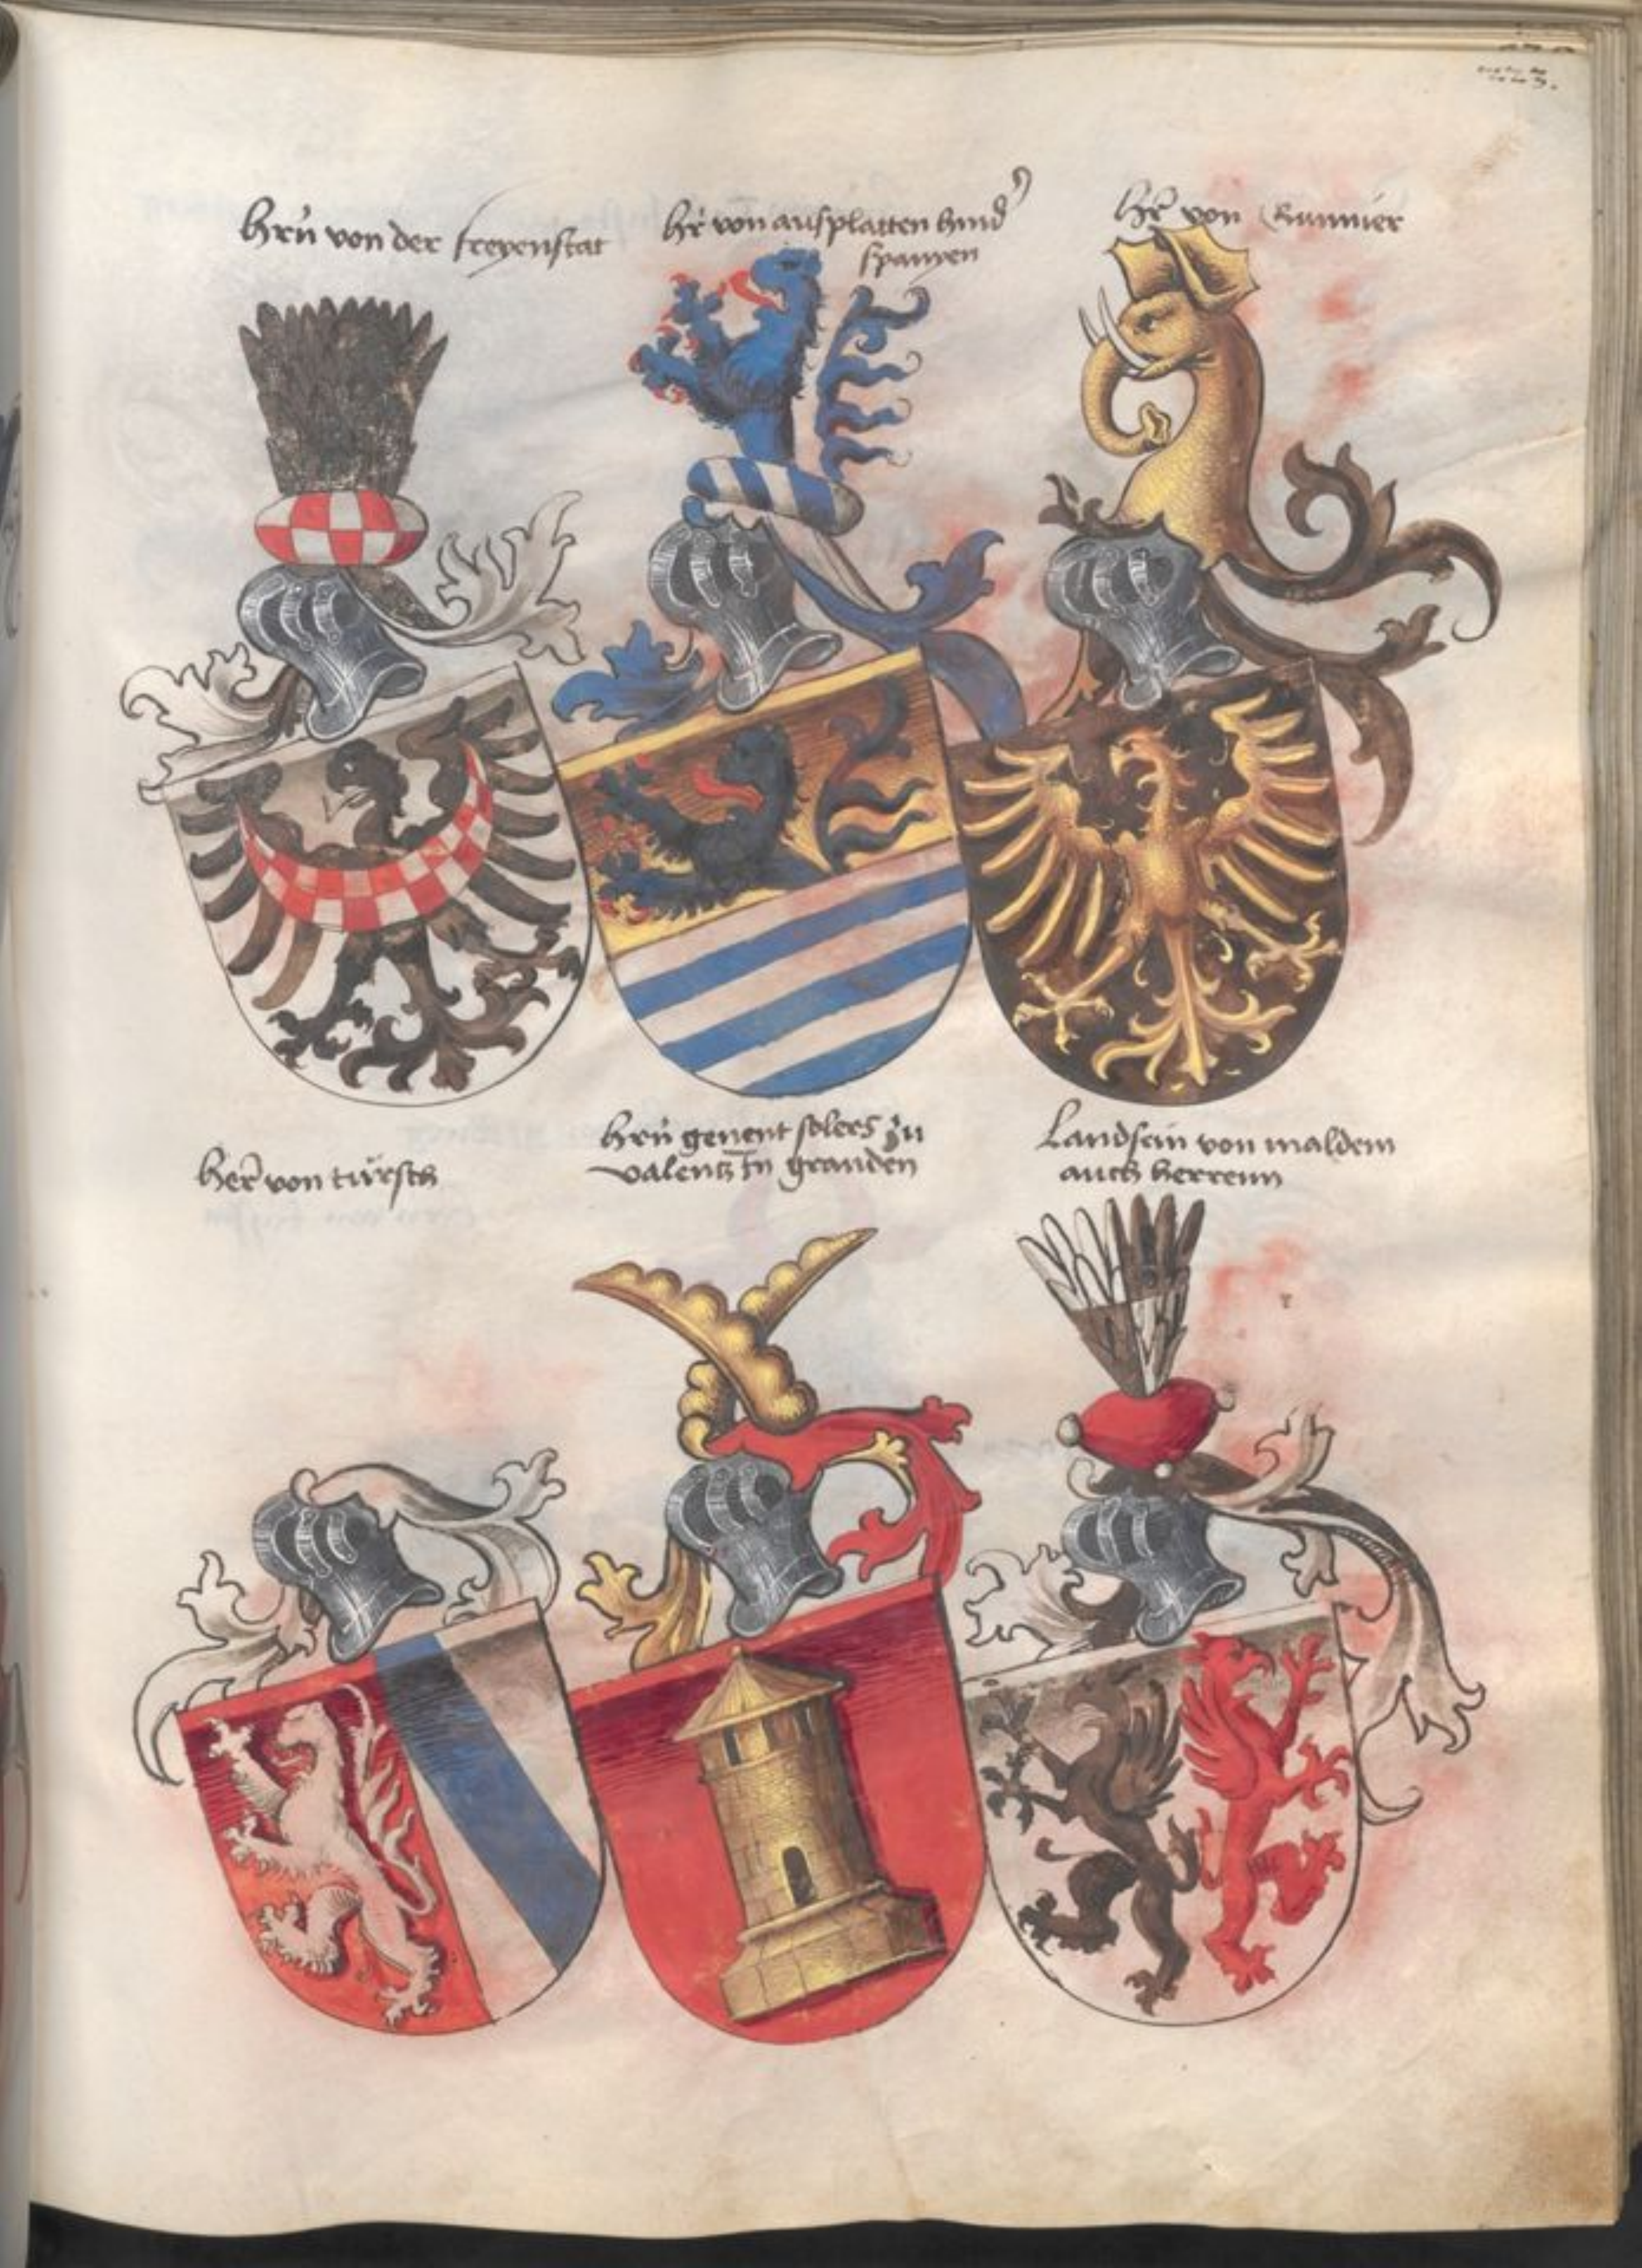 hrn von der freyenstat
hr von ausplatten hind
spanyen
hr von
her von türsch
hrn genent solers zu
valentz in granden
Landsein von maldem
auch herrenn